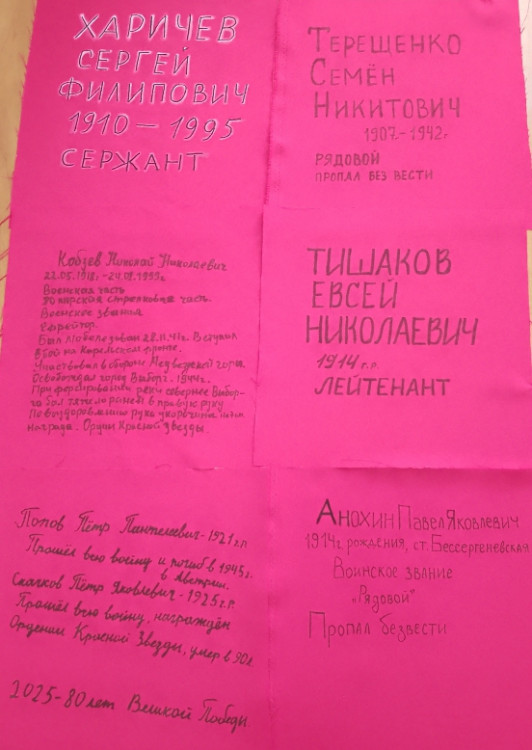 ХАРИЧЕВ
СЕРГЕЙ
ФИЛИПОВИЧ
1910 – 1995
СЕРЖАНТ
ТЕРЕЩЕНКО
СЕМЁН
НИКИТОВИЧ
1907.-1942г.
РЯДОВОЙ
ПРОПАЛ БЕЗ ВЕСТИ
Кобзев Николай Николаевич
22.05.1918г.-24.09.1999г.
Воинская часть
стрелковая часть.
Воинское звание
Ефрейтор.
Был мобилизован 28.11.41г. Вступил
в бой на Карельском фронте.
Участвовал в обороне Медвежьей горы.
Освобождал город Выборг-1944г.
При форсировании реки севернее Выбор-
га был тяжело ранен в правую руку
По выздоровлению рука укорочена
Награда. Орден Красной Звезды
ТИШАКОВ
ЕВСЕЙ
НИКОЛАЕВИЧ
1914 г.р.
ЛЕЙТЕНАНТ
Попов Пётр Пантелеевич-1921г.р.
Прошёл всю войну и погиб в 1945г.
в Австрии.
Скачков Пётр Яковлевич-1925г.р.
Прошёл всю войну, награждён
Орденом Красной Звезды, умер в 90г.
2025-80 лет Великой Победы
АНОХИН ПАВЕЛ ЯКОВЛЕВИЧ
1914г. рождения, ст. Бессергеневская
Воинское звание
"Рядовой".
Пропал безвести